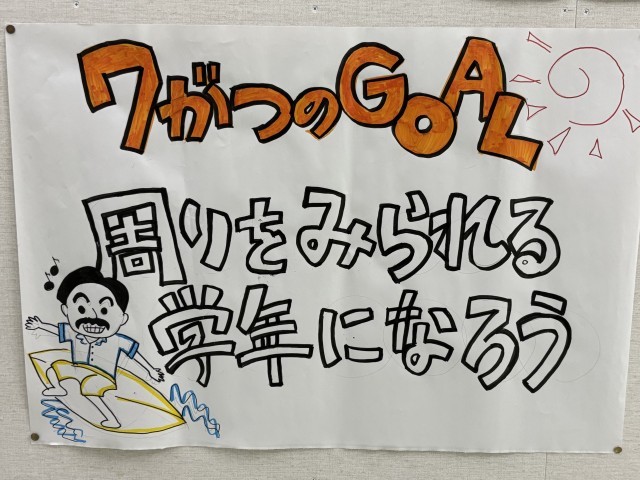 7がつのGOAL
周りをみられる
学年になろう